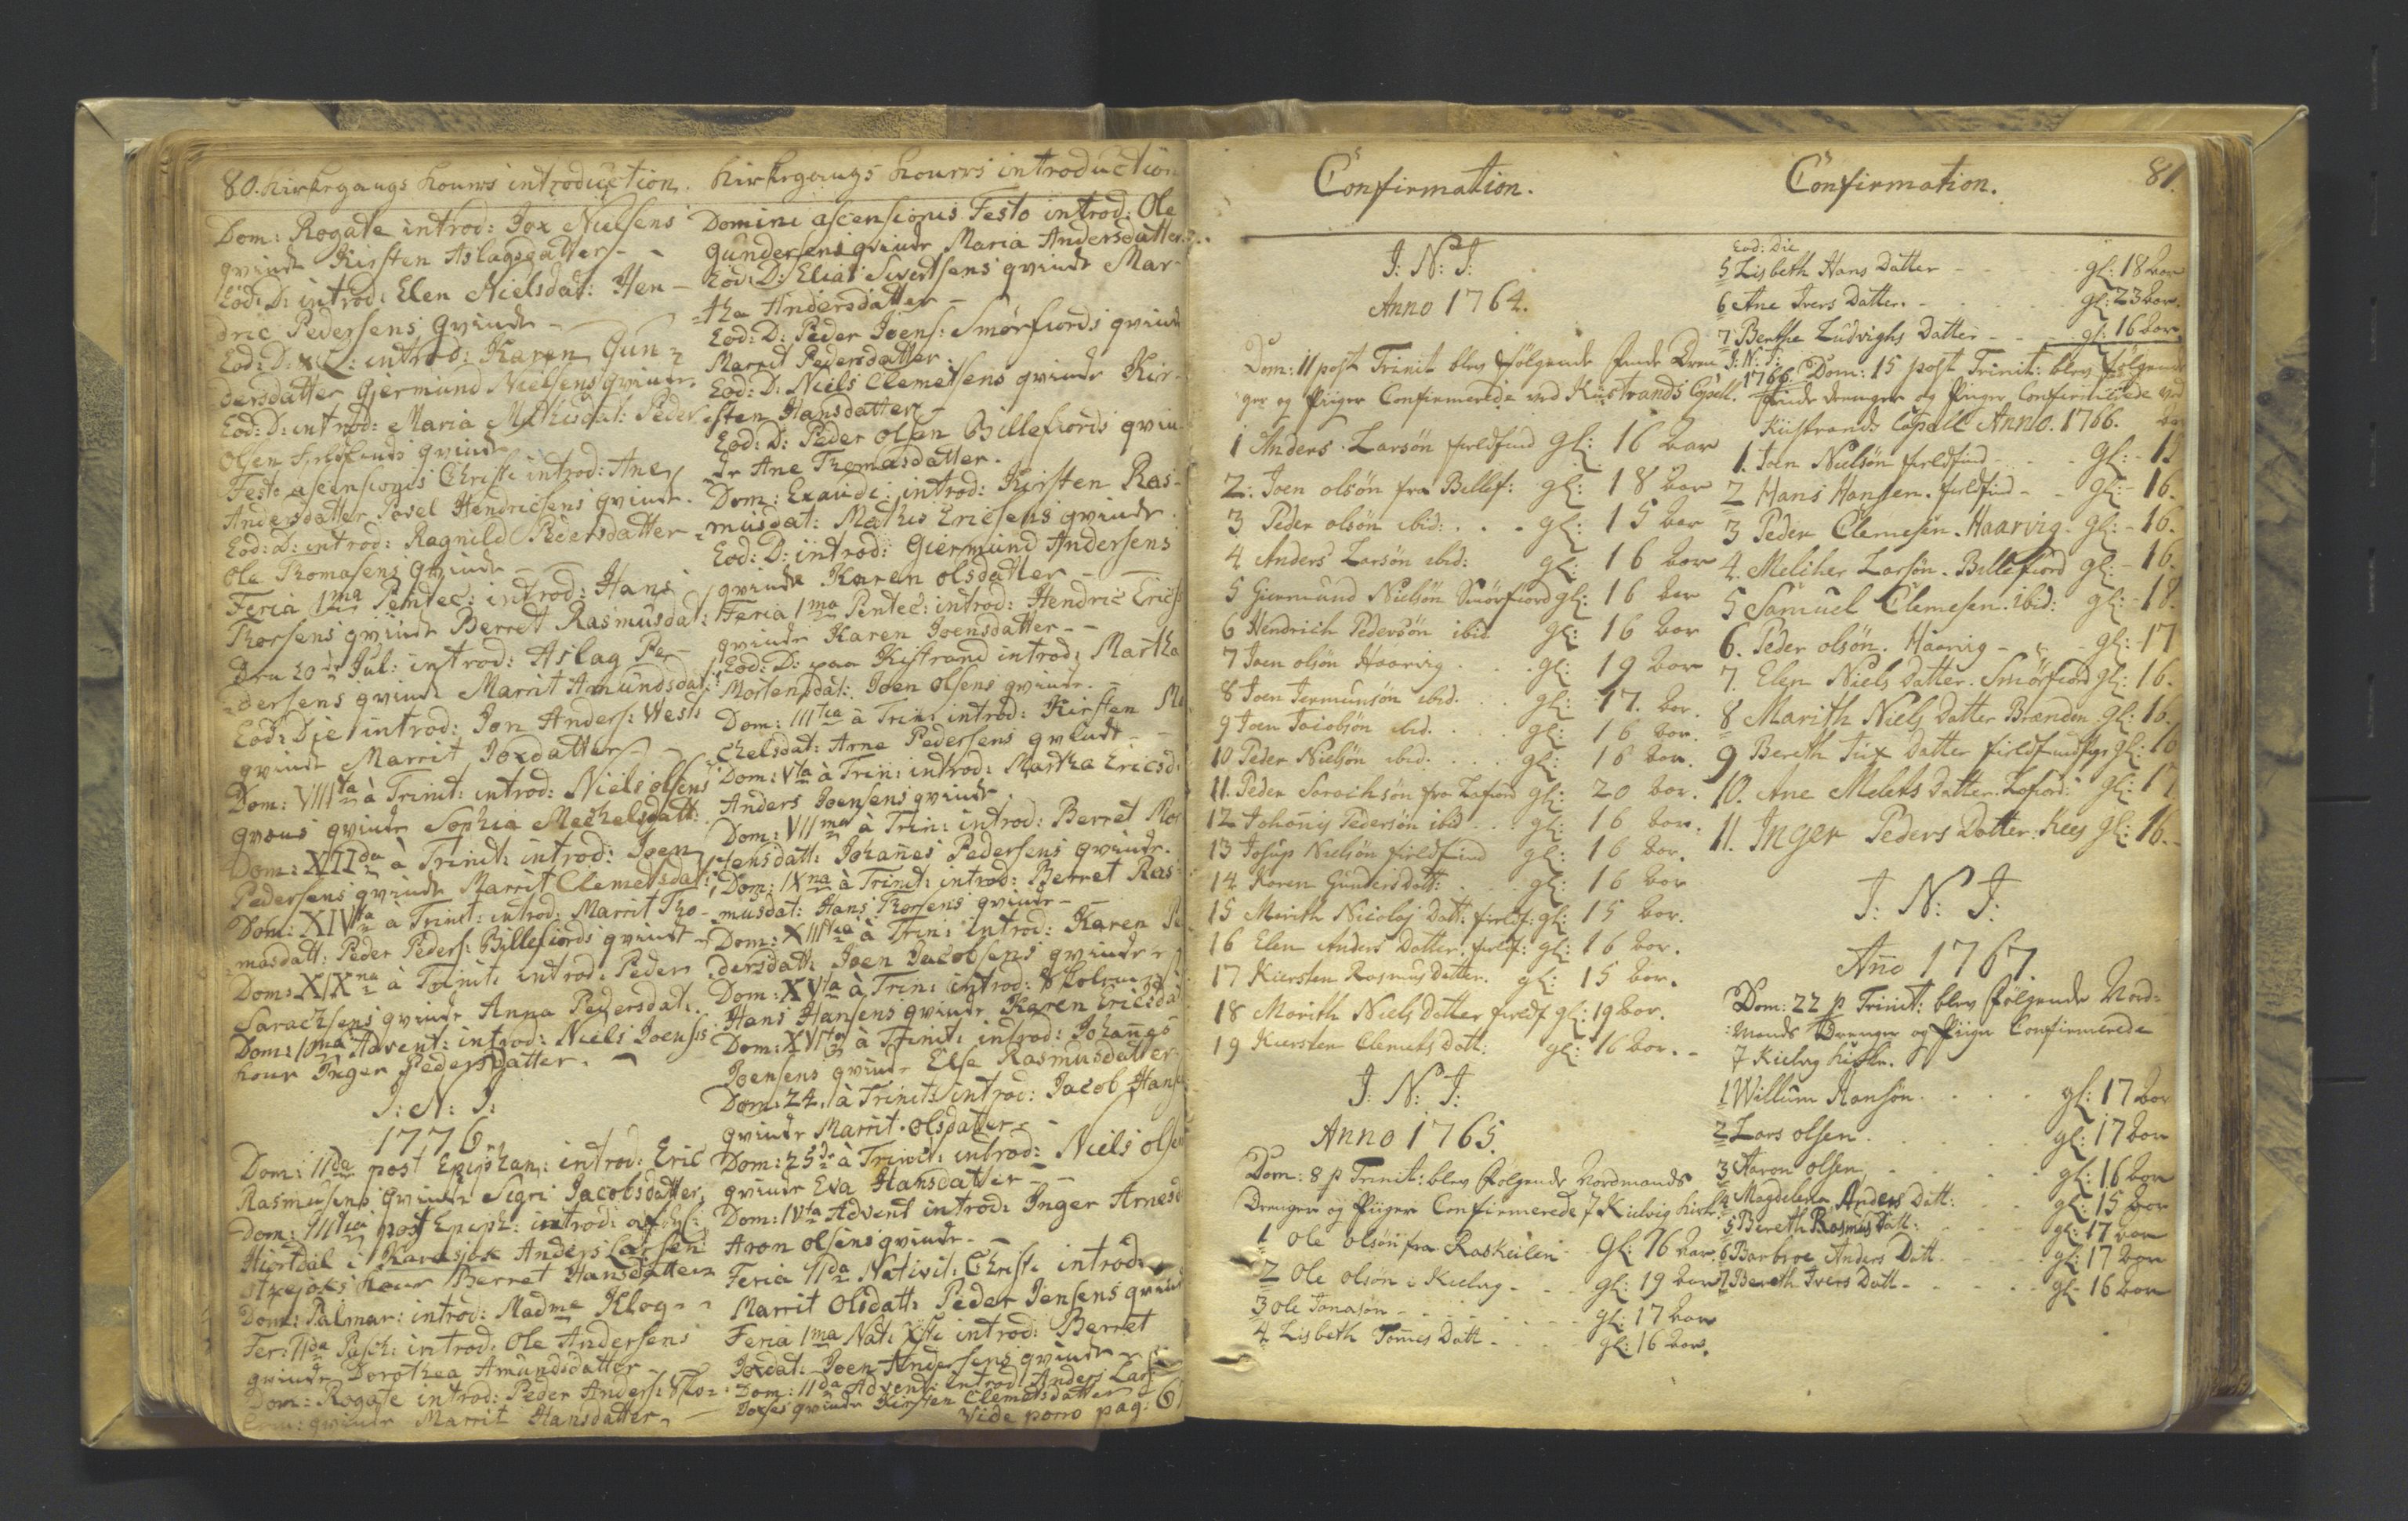 80. Kirkegangs Koners introduction.
Dom: Rogate introd: Jox Nielsens
qvinde Kirsten Aslagsdatter
Eod: D: introd: Elen Nielsdat: Hen-
dric Pedersens Qvinde
Eod: D: introd: Karen Gun-
dersdatter Gjermund Nielsens qvinde.
Eod: D: introd: Maria Mathisdat: Peder
Olsen qvinde
Festo ascensionis Christi introd: Ane
Andersdatter Povel Hendricsens qvinde.
Eod: D: introd: Ragnild Pedersdatter
Ole Thomasens qvinde
Feria 1ma Pentec: introd: Hans
Thorsens qvinde Berret Rasmusdat:
Den 20de Jul: introd: Aslag Pe-
dersens qvinde Marrit Amundsdat:
Eod: Die introd: Jon Anders: Wests
qvinde Marrit Joxdatter
Dom: VIIIta à Trinit: introd: Niels Olsens
qvinde Sophia Mechelsdatt:
Dom: XIIda à Trinit: introd: Joen
Pedersens qvinde Marrit Clemetsdat:
Dom: XIVta à Trinit: introd: Marrit Tho-
masdatt: Peder Peders: Billefiords qvinde
Dom: XIXna à Trinit: introd: Peder
Sarachsens qvinde Anna Pedersdat:
Dom: 1ma Advent: introd: Niels Joens:
Kone Inger Pedersdatter.
J: N: J:
1776.
Dom: IIda post Epiphan: introd: Eric
Rasmusens qvinde Sigri Jacobsdatter
Dom: IIItia post Epiph: introd:
Hiortdal i Karasjok Anders Larsen
Kone Berret Hansdatter
Dom: Palmar: introd: Madme Klog
Fer: IIda Pasch: introd: Ole Andersens
qvinde Dorothea Amundsdatter
Dom: Rogate introd: Peder Anders:
qvinde Marrit Hansdatter
Kirkegangs Koners introduction
Domini ascensionis Festo introd: Ole
Gundersens qvinde Maria Andersdatter
Eod: D: Elias Sivertsens qvinde Mar-
tha Andersdatter
Eod: D: Peder Joens: Smørfiords qvinde
Marrit Pedersdatter.
Eod: D: Niels Clemetsens qvinde Kir-
sten Hansdatter
Eod: D: Peder Olsen Billefiords qvin-
de Ane Thomasdatter.
Dom: Exaudi: introd: Kirsten Ras-
musdat: Mathis Ericsens qvinde.
Eod: D: introd: Giermund Andersens
qvinde Karen Olsdatter
Feria 1ma Pentec: introd: Hendric Erics
qvinde Karen Joensdatter
Eod: D: paa Kistrand introd: Martha
Mortensdat: Joen Olsens qvinde.
Dom: IIItia à Trin: introd: Kirsten Me
chelsdat: Arne Pedersens qvinde
Dom: Vta à Trin: introd: Martha Ericsd:
Anders Joensens qvinde.
Dom: VIIma à Trin: introd: Berret Mor
tensdatt: Johañes Pedersens qvinde.
Dom: IXna à Trinit: introd: Berret Ras-
musdat: Hans Thorsens qvinde
Dom: XIIItia à Trin: introd: Karen Pe
dersdatt: Joen Jacobsens qvinde
Dom: XVta à Trin: introd:
Hans Hansens qvinde Karen Ericsdat
Dom: XVIta à Trinit: introd: Johañes
Joensens qvinde Else Rasmusdatter
Dom: 24. à Trinit: introd: Jacob Hans
qvinde Marrit Olsdatter
Dom: 25de à Trinit: introd: Niels Olsen
qvinde Eva Hansdatter
Dom: IVta Advent introd: Inger Arnesd
Aron Olsens qvinde.
Feria IIda Nativit: Christi introd:
Marrit Olsdatt: Peder Jensens qvinde
Feria 1ma Nat: Xsti introd: Berret
Joxdat: Joen Andersens qvinde
Dom: IIda Advent: introd: Anders Lars
qvinde Kirsten Clemetsdatter
Vide porro pag: 6
Confirmation.
J: N: J:
Anno 1764.
Dom: 11 post Trinit blev følgende finde Dren
ger og Piiger Confirmerede ved Kiistrands Capell.
1 Anders Larsön fieldfind gl: 16 aar
2. Joen olsön fra Billef: gl: 18 aar
3 Peder olsön ibid: . . . gl: 15 aar
4 Anders Larsön ibid: gl: 16 aar
5 Giermund Nielsön Smörfiord gl: 16 aar
6 Hendrich Pedersön ibid gl: 16 aar
7 Joen olsön Haarvig . . . gl: 19 aar
8 Joen Jermunsön ibid. . . gl: 17. aar.
9 Joen Jacobsön ibid. . . . gl: 16 aar.
10 Peder Nielsön ibid. . . . gl: 16 aar.
11. Peder Sarachsön fra Lafiord gl: 20 aar.
12 Johañis Pedersön ibid . . . gl: 16 aar.
13 Josup Nielsön fieldfind gl: 16 aar.
14 Karen Gundersdatt: . . . gl: 16 aar
15 Marith Nicolaj Datt: fieldf: gl: 15 aar.
16 Elen Anders Datter. fieldf: gl: 16 aar.
17 Kiersten Rasmus Datter. gl: 15 aar.
18 Marith Niels Datter fieldf gl: 19 aar.
19 Kiersten Clemets Datt: gl: 16 aar.
J: N: J:
Anno 1765.
Dom: 8 p Trinit: blev følgende Nordmands
Drenger og Piiger Confirmerede i Kielvig Kirke
1 Ole olsön fra Raskeilen gl: 16 aar
2 Ole olsön i Kielvig - - gl: 19 aar
3 Ole Jonasön - - - - - gl: 17 aar
4 Lisbeth Tomes Datt - - - gl: 16 aar.
Confirmation. 81.
Eod: Die
5 Lisbeth Hans Datter - - - gl: 18 aar
6 Ane Ivers Datter. - - - gl: 23 aar.
7 Berthe Ludvighs Datter - - - gl: 16 aar.
J: N: J:
1766. Dom: 15 post Trinit: blev følgende
finde drenger og Piiger Confirmerede ved
Kiistrands Capell Anno. 1766.
1. Joen Nielsön fieldfind - - - gl:
2 Hans Hansen. fieldfind - - gl: - 16.
3 Peder Clemesen. Haarvig. gl: - 16.
4. Melcher Larsön. Billefiord gl: - 16.
5 Samuel Clemesen. ibid: gl: - 18.
6. Peder olsön. Haarvig - - - gl: - 17
7. Elen Niels Datter. Smörfiord gl: 16.
8 Marith Niels Datter Brænden gl: 16.
9 Bereth Jux Datter gl: 16
10. Ane Melchs Datter. Lafiord: gl: 17
11. Inger Peders Datter. Kees gl: 16.
J: N: J:
Año 1767.
Dom: 22 p Trinit: blev følgende Nord-
mands Drenger og Piiger Confirmerede
i Kielvig Kirke.
1 Willum Hansön . . . . gl: 17 aar
2 Lars olsen . . . . . gl: 17 aar
3 Aaron olsen - . . . . gl: 16 aar
4 Magdelena Anders Datt: gl: 15 aar
5 Bereth Rasmus Datt: - - - gl: 17 aar
6 Barbroe Anders Datt - - - gl: 17 aar
7 Bereth Ivers Datt - - - gl: 16 aar